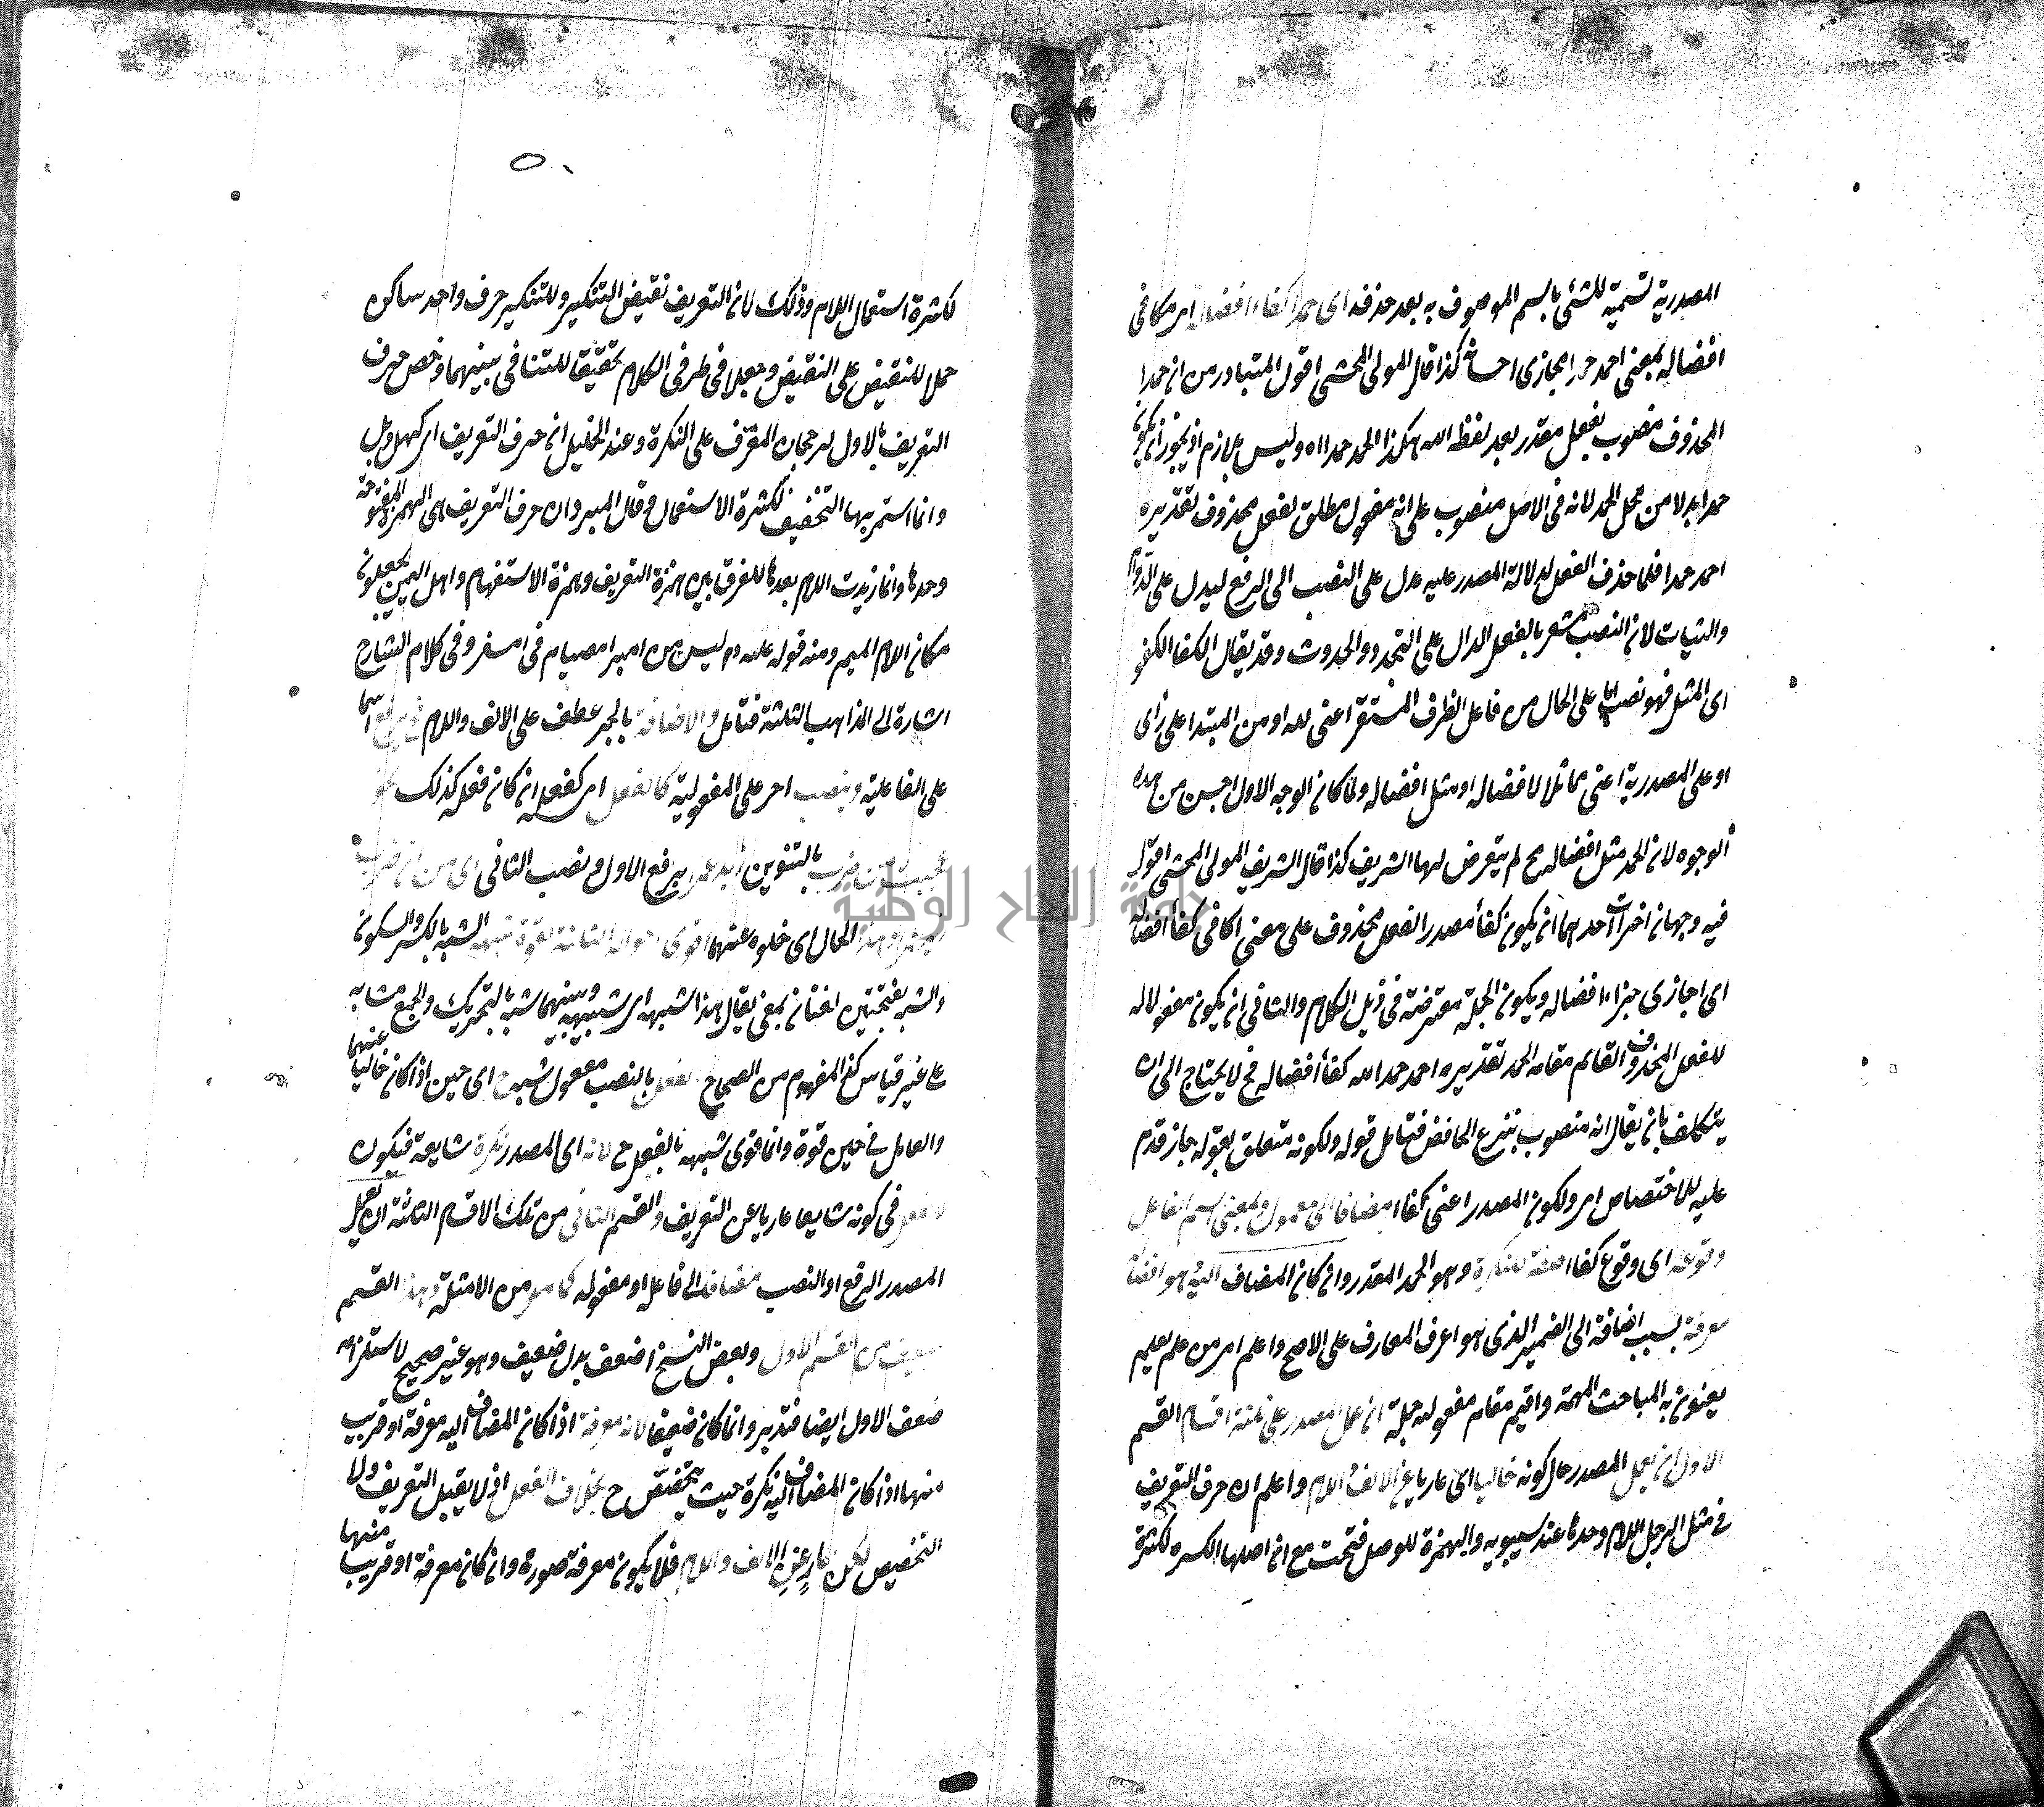 المصدرية تسمية للشئ باسم الموصوف به بعد حذفه اى حمدا كفاء افضاله اى مكافى
افضاله بمعنى احمد حمدا مجازى احسانه كذا قال المولى المحشى اقول المتبادر من ان حمدا
المحذوف منصوب بفعل مقدر بعد لفظه الله هكذا الحمد حمدا اه وليس بلازم اذ يجوز ان يكون
حمدا بدلا من محل الحمد لانه فى الاصل منصوب على انه مفعول مطلق لفعل محذوف تقديره
احمد حمدا فلما حذف الفعل لدلالة المصدر عليه عدل على النصب الى الرفع ليدل على الدوام
والثبات لان النصب مشعر بالفعل الدال على التجدد والحدوث وقد يقال الكفا الكفو
اى المثل فهو نصب اما على الحال من فاعل الظرف المستقر اعنى لله او من المبتدا على رأى
او على المصدرية اعنى مماثلا لافضاله او مثل افضاله ولما كان الوجه الاول احسن من هذه
الوجوه لان الحمد مثل افضاله مح لم يتعرض لها الشريف كذا قال الشريف المولى المحشى اقول
فيه وجهان اخران احدهما ان يكون كفأ مصدرا لفعل محذوف على معنى اكافى كفأ افضاله
اى اجازى جزاء افضاله ويكون الجملة معترضة فى ذيل الكلام والثانى ان يكون مفعولا له
للفعل المحذوف القائم مقامه الحمد تقديره احمد حمد الله كفأ افضاله فح لا يحتاج الى ان
يتكلف بان يقال انه منصوب بنزع الخافض فتامل قوله ولكونه متعلق بقوله جاز قدم
عليه للاختصاص اى ولكون المصدر اعنى كفاا مضافا الى معمول وبمعنى اسم الفاعل
وقوعه اى وقوع كفاا صفة للنكرة وهو الحمد المقدر وان كان المضاف اليه هو افضاله
معرفة بسبب اضافة الى الضمير الذى هو اعرف المعارف على الاصح واعلم امر من علم يعلم
يعنون به المباحث المهمة واقيم مقام مفعوله جملة ان عمل المصدر على ثلثة اقسام القسم
الاول ان يعمل المصدر حال كونه خاليا اى عاريا عن الالف واللام واعلم ان حرف التعريف
فى مثل الرجل اللام وحدها عند سيبويه والهمزة للوصل فتحت مع ان اصلها الكسره لكثرة
٥٠
لكثرة استعمال اللام وذلك لان التعريف نقيض التنكير وللتنكير حرف واحد ساكن
حملا للنقيض على النقيض وجعلا فى طرفى الكلام تحقيقا للتنافى بينهما وخص حرف
التعريف بالاول لرجحان المعرف على النكرة وعند الخليل ان حرف التعريف ال كهل وبل
وانما استمر بها التخفيف لكثرة الاستعمال وقال المبرد ان حرف التعريف هى الهمزة المفتوحة
وحدها وانما زيدت اللام بعدها للفرق بين همزة التعريف وهمزة الاستفهام واهل اليمن يجعلون
مكان اللام الميم ومنه قوله عليه وم ليس من امبر امصيام فى امسفر وفى كلام الشارح
اشارة الى المذاهب الثلثة فتامل والاضافة بالجر عطف على الالف واللام اسما
على الفاعلية وينصب اخر على المفعولية كالفعل اى كفعله ان كان فعله كذلك نحو
عجبت من ضرب بالتنوين زيد عمرا برفع الاول ونصب الثانى اى من ان ضرب
وهذا الحال اى خلوه عنهما اقوى احواله الثلثة لقوة شبهه الشبه بالكسر والسكون
والشبه بفتحتين لغتان بمعنى يقال هذا شبهه اى شبيهه وبينهما شبه بالتحريك والجمع مشابه
على غير قياس كذا المفهوم من الصحاح بالفعل بالنصب معمول شبه ح اى حين اذا كان خاليا عنهما
والعامل فى حين قوة وانما قوى شبهه بالفعل ح لانه اى المصدر نكرة شايعة فيكون
كالفعل فى كونه شايعا عاريا عن التعريف والقسم الثانى من تلك الاقسام الثلثة ان يعمل
المصدر الرفع او النصب مضافا الى فاعله او مفعوله كما مر من الامثلة وهذا القسم
ضعيف من القسم الاول وبعض النسخ اضعف بدل ضعيف وهو غير صحيح لاستلزامه
ضعف الاول ايضا فتدبر وانما كان ضعيفا لانه معرفة اذا كان المضاف اليه معرفة او قريب
منها اذا كان المضاف اليه نكرة حيث يتخصص ح بخلاف الفعل اذ لا يقبل التعريف ولا
التخصيص لكن عار عن الالف واللام فلا يكون معرفة صورة وان كان معرفة او قريب منها
جامعة النجاح الوطنية